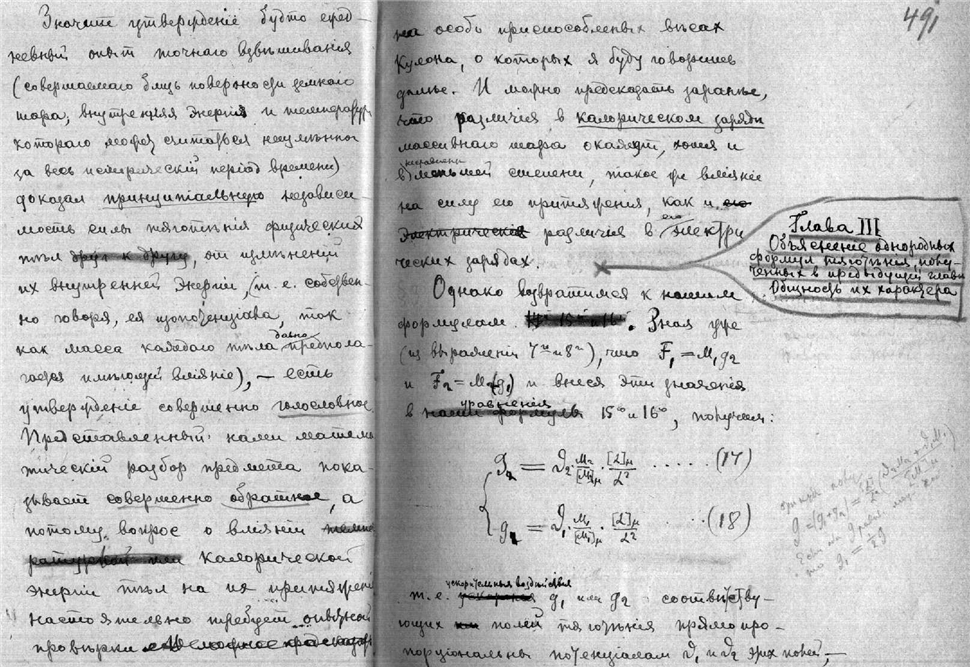 Значитъ утвержденіе будто еже-
дневный опытъ точнаго взвѣшиванія
(совершаемаго близь поверхности земного
шара, внутренняя энергія и температура
котораго можетъ считаться неизмѣнною
за весь историческій періодъ времени)
доказалъ принципіальную независи-
мость силы тяготѣнія физическихъ
тѣлъ другъ к другу, отъ измѣненій
ихъ внутренней энергіи, (т. е. собствен-
но говоря, ея потенціала, такъ
какъ масса каждаго тѣла давно предпола-
гается имѣющей вліяніе), — есть
утвержденіе совершенно голословное.
Представленный нами матема-
тическій разборъ предмета пока-
зываетъ совершенно обратное, а
потому вопросъ о вліяніи
калорической
энергіи тѣлъ на их притяженіе
настоятельно требуетъ опытной
провѣрки
491
на особо приспособленых вѣсах
Кулона, о которых я буду говорить
дальше. И можно предсказать заранѣе,
что различія в калорическом зарядѣ
массивнаго шара окажутъ, хотя и
в несравненно меньшей степени, такое же вліяніе
на силу его притяженія, как и его
электрическія различія в его электри-
ческих зарядах.
Глава III
Объясненіе однородных
формул тяготѣнія, полу-
ченных в предыдущей главѣ
Общность их характера
Однако возвратимся к нашим
формулам. Зная уже
(из выраженій 7ᵒ и 8ᵒ), что F₁ = M₁g₂
и F₂ = M₂(g₁) и внеся эти значенія
в уравненія 15ᵒ и 16ᵒ, получим:
g₂ = ϑ₂ · M₂/[M]μ · [L]μ/L² ······ (17)
g₁ = ϑ₁ · M₁/[M]μ · [L]μ/L² ······ (18)
т. е. ускорительныя воздѣйствія g₁ или g₂ соотвѣтству-
ющих полей тяготѣнія прямо про-
порціональны потенціалам ϑ₁ и ϑ₂ этих полей, —